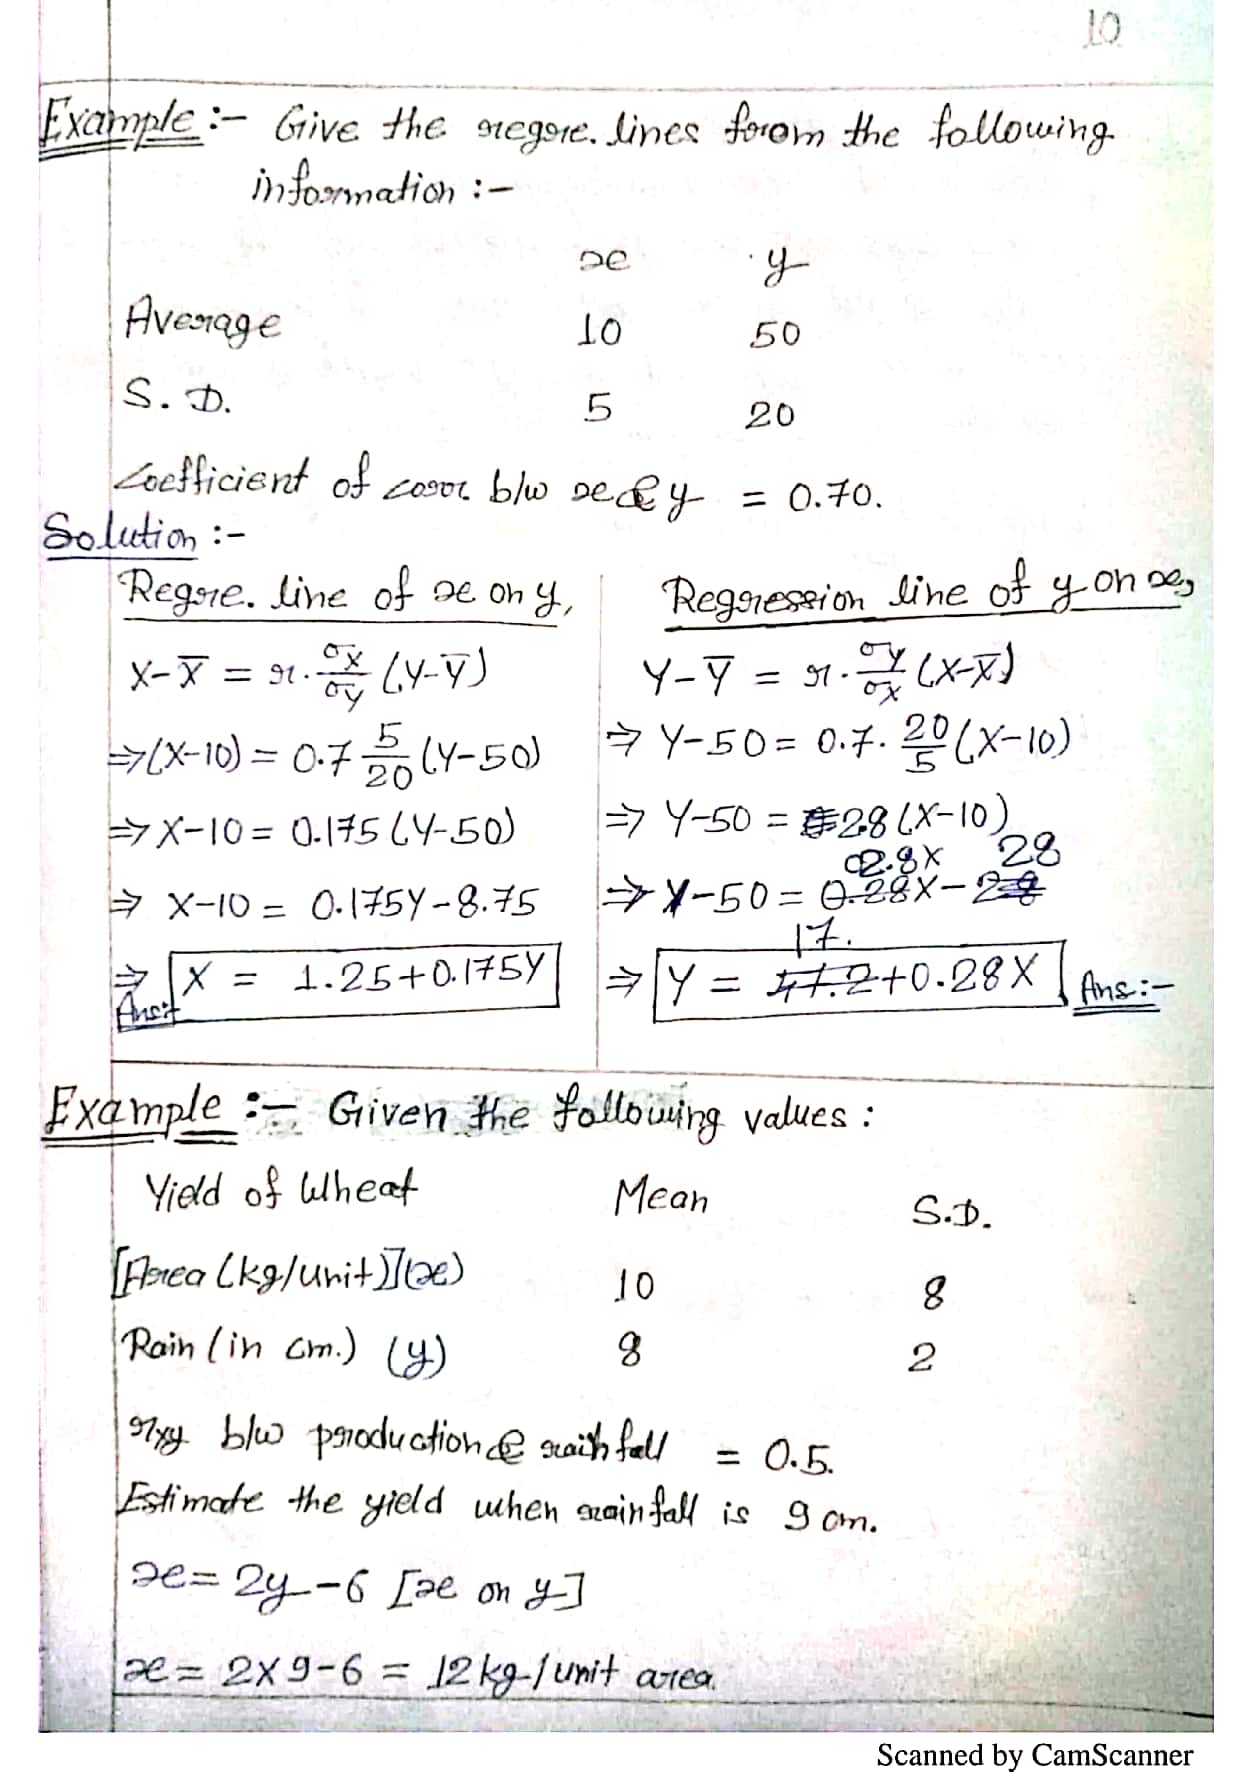 10
Example :- Give the regre. lines from the following
information :-
x y
Average 10 50
S. D. 5 20
Coefficient of corr b/w x & y = 0.70.
Solution :-
Regre. line of x on y,
X-X̅ = r. σx/σy (Y-Y̅)
⇒(X-10) = 0.7 5/20 (Y-50)
⇒ X-10 = 0.175 (Y-50)
⇒ X-10 = 0.175Y-8.75
⇒ X = 1.25+0.175Y
Ans:-
Regression line of y on x,
Y-Y̅ = r. σy/σx (X-X̅)
⇒ Y-50 = 0.7. 20/5 (X-10)
⇒ Y-50 = 28 (X-10)
2.8X 28
⇒ Y-50 = 0.28X-
17.
⇒ Y = 47.2+0.28X Ans:-
Example :- Given the following values :
Yield of Wheat Mean S.D.
[Area (kg/unit)](x) 10 8
Rain (in cm.) (y) 8 2
rxy b/w production & rainfall = 0.5.
Estimate the yield when rainfall is 9 cm.
x = 2y-6 [x on y]
x = 2x9-6 = 12kg/unit area.
Scanned by CamScanner